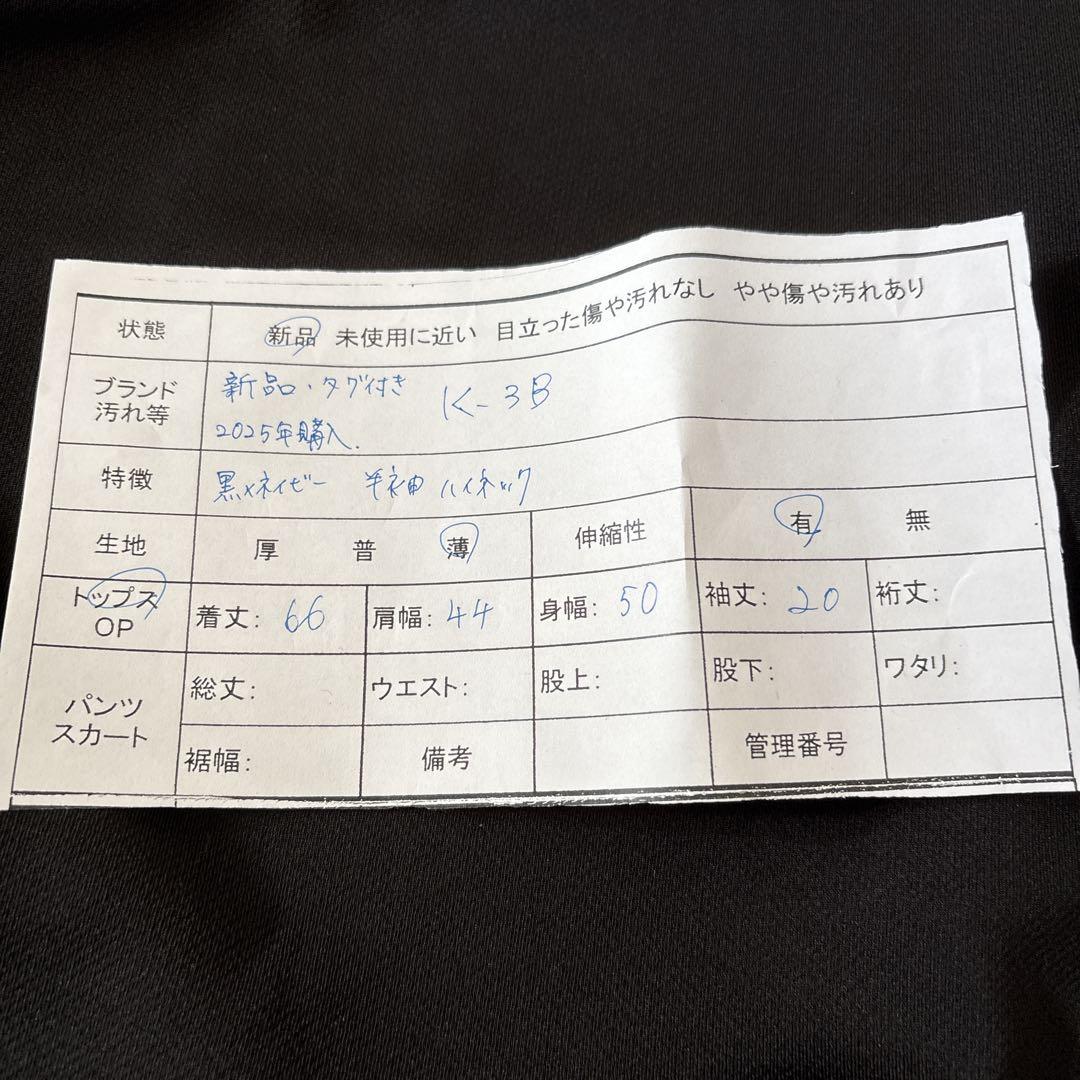 状態 新品 未使用に近い 目立った傷や汚れなし やや傷や汚れあり
ブランド 新品・タグ付き K-3B
汚れ等 2025年購入.
特徴 黒×ネイビー 半袖 ハイネック
生地 厚 普 薄 伸縮性 有 無
トップス
OP 着丈: 66 肩幅: 44 身幅: 50 袖丈: 20 裄丈:
パンツ
スカート 総丈: ウエスト: 股上: 股下: ワタリ:
裾幅: 備考 管理番号